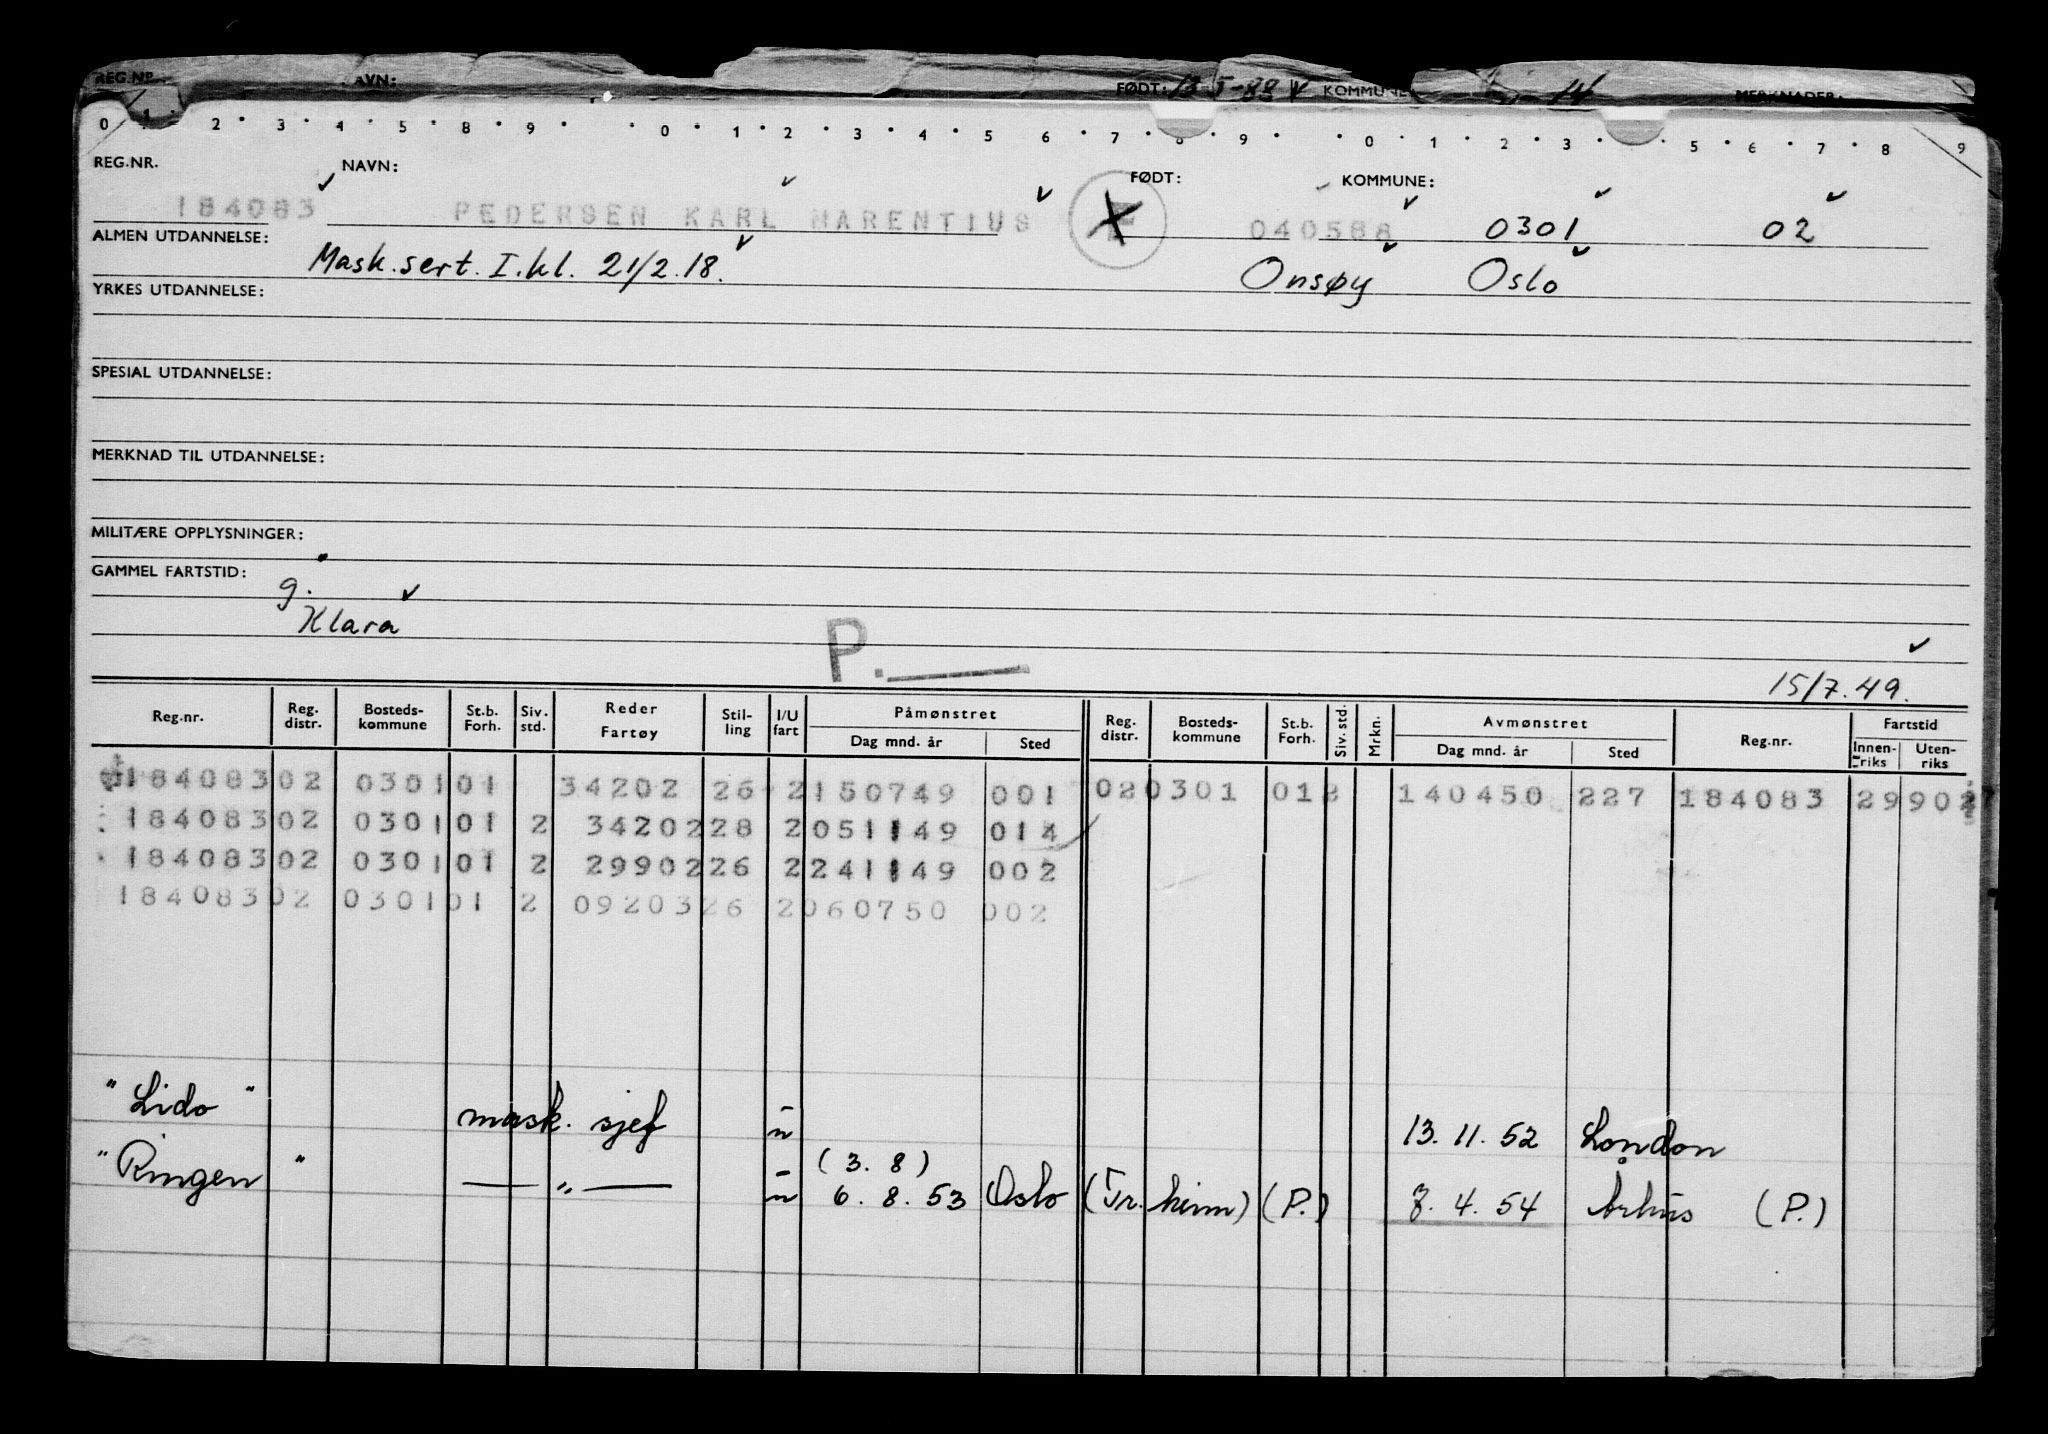 REG.NR. NAVN: FØDT: KOMMUNE MERKNADER:
0 1 2 3 4 5 8 9 0 1 2 3 4 5 6 7 8 9 0 1 2 3 5 6 7 8 9
REG.NR. NAVN: FØDT: KOMMUNE:
184083 PEDERSEN KARL MARENTIUS 040588 0301 02
ALMEN UTDANNELSE: Mask.sert. I.kl. 21/2.18. Onsøy Oslo
YRKES UTDANNELSE:
SPESIAL UTDANNELSE:
MERKNAD TIL UTDANNELSE:
MILITÆRE OPPLYSNINGER:
GAMMEL FARTSTID:
g.
Klara
P.
15/7.49.
Reg.nr. Reg. distr. Bosteds-kommune St.b. Forh. Siv. std. Reder Fartøy Stil-ling I/U fart Påmønstret Dag mnd. år Sted Reg. distr. Bosteds-kommune St.b. Forh. Siv. std. Mrkn. Avmønstret Dag mnd. år Sted Reg.nr. Fartstid Innen-riks Uten-riks
184083 02 0301 01 34202 26 2 150749 001 02 0301 01 2 140450 227 184083 29902
184083 02 0301 01 2 34202 28 2 051149 014
184083 02 0301 01 2 29902 26 2 241149 002
184083 02 0301 01 2 09203 26 2 060750 002
"Lido" mask. sjef u 13. 11. 52 London
(3. 8)
"Ringen" — " — u 6. 8. 53 Oslo (Tr.heim) (P.) 8. 4. 54 Århus (P.)